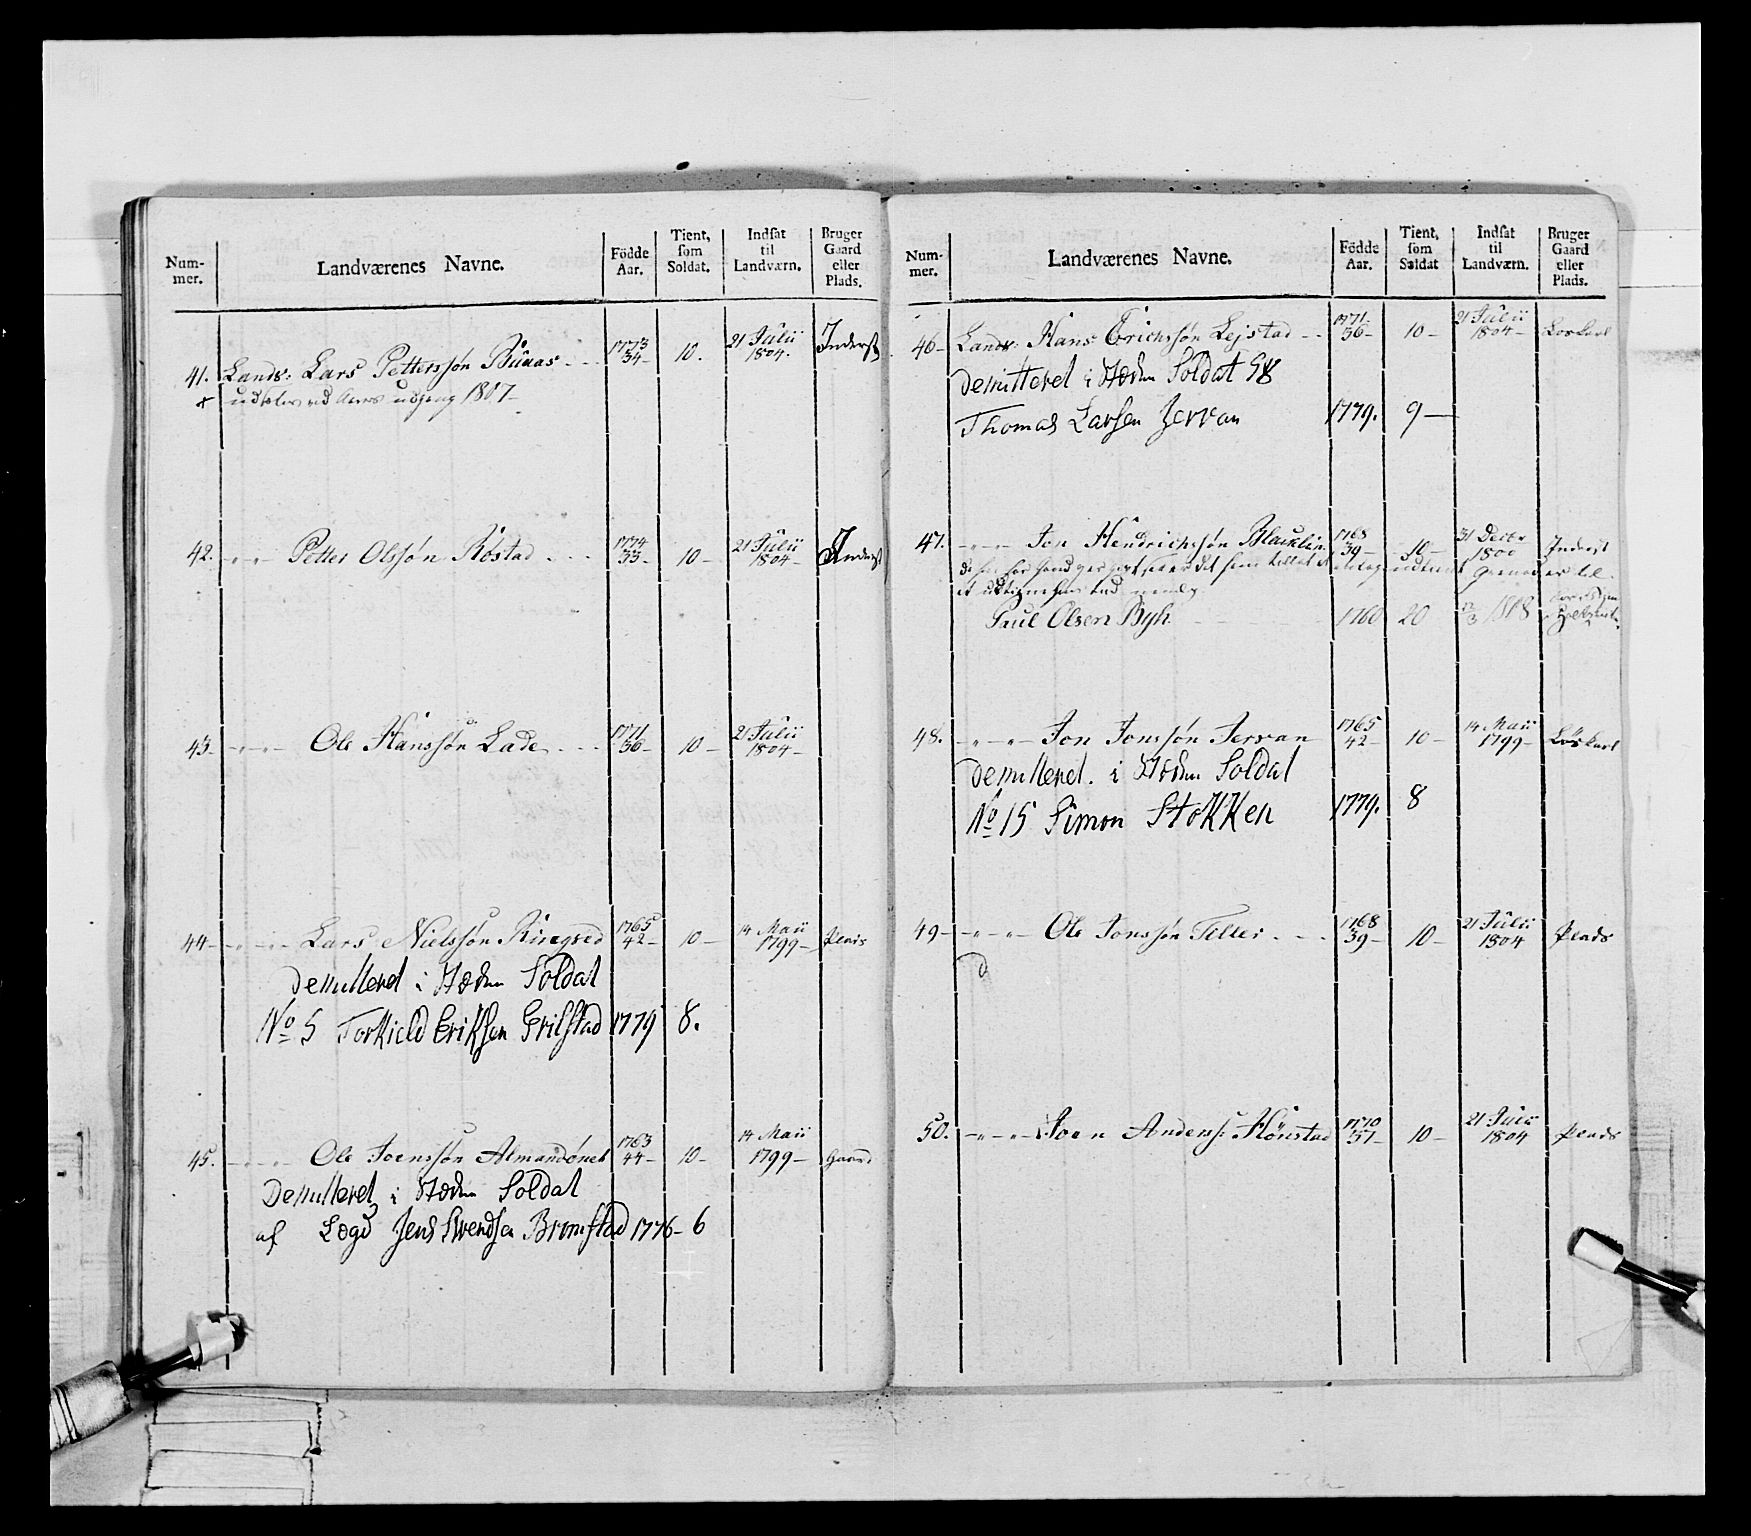 Num-
mer.
Landværenes Navne.
Födde
Aar.
Tient,
som
Soldat.
Indsat
til
Landværn.
Bruger
Gaard
eller
Plads.
41. Lands: Lars Pettersøn 1773 34- 10. 21 Julii 1804. Inderst
+ ved Aars udgang 1807
42. -"-"- Petter Olsøn Röstad 1774 33- 10- 21 Julii 1804- Inderst
43- -"-"- Ole Hanssøn Lade 1771 36- 10- 21 Julii 1804-
44- -"-"- Lars Nielssøn Ringved 1765 42- 10- 14 Maii 1799- Plads
Demitteret i Stæden Soldat
No 5 Torkield Eriksen Grilstad 1779 8.
45. -"-"- Ole Joenssøn 1763 44- 10- 14 Maii 1799- Gaard
Demitteret i Stæden Soldat
af Lægd Jens Svendsen Bromstad 1776- 6
Num-
mer.
Landværenes Navne.
Födde
Aar.
Tient,
som
Soldat
Indsat
til
Landværn.
Bruger
Gaard
eller
Plads.
46- Lands: Hans Erichssøn Lejstad 1771 36- 10- 21 Julii 1804- Löskarl
Demitteret i Stæden Soldat 58
Thomas Larsen Jervan 1779. 9-
47. -"-"- Jon Hendrichssøn 1768 39- 10- 31 Decbr 1800 Inderst
Paul Olsen Byh 1760 20 1808
48. -"-"- Jon Jonssøn Jervan 1765 42- 10- 14 Maii 1799- Löskarl
Demitteret. i Stæden Soldat
No 15 Simon Stokken 1779. 8
49- -"-"- Ole Jonssøn Teller 1768 39- 10- 21 Julii 1804 Plads
D
50. -"-"- Joen Anders: Hönstad 1770 37- 10- 21 Julii 1804 Plads